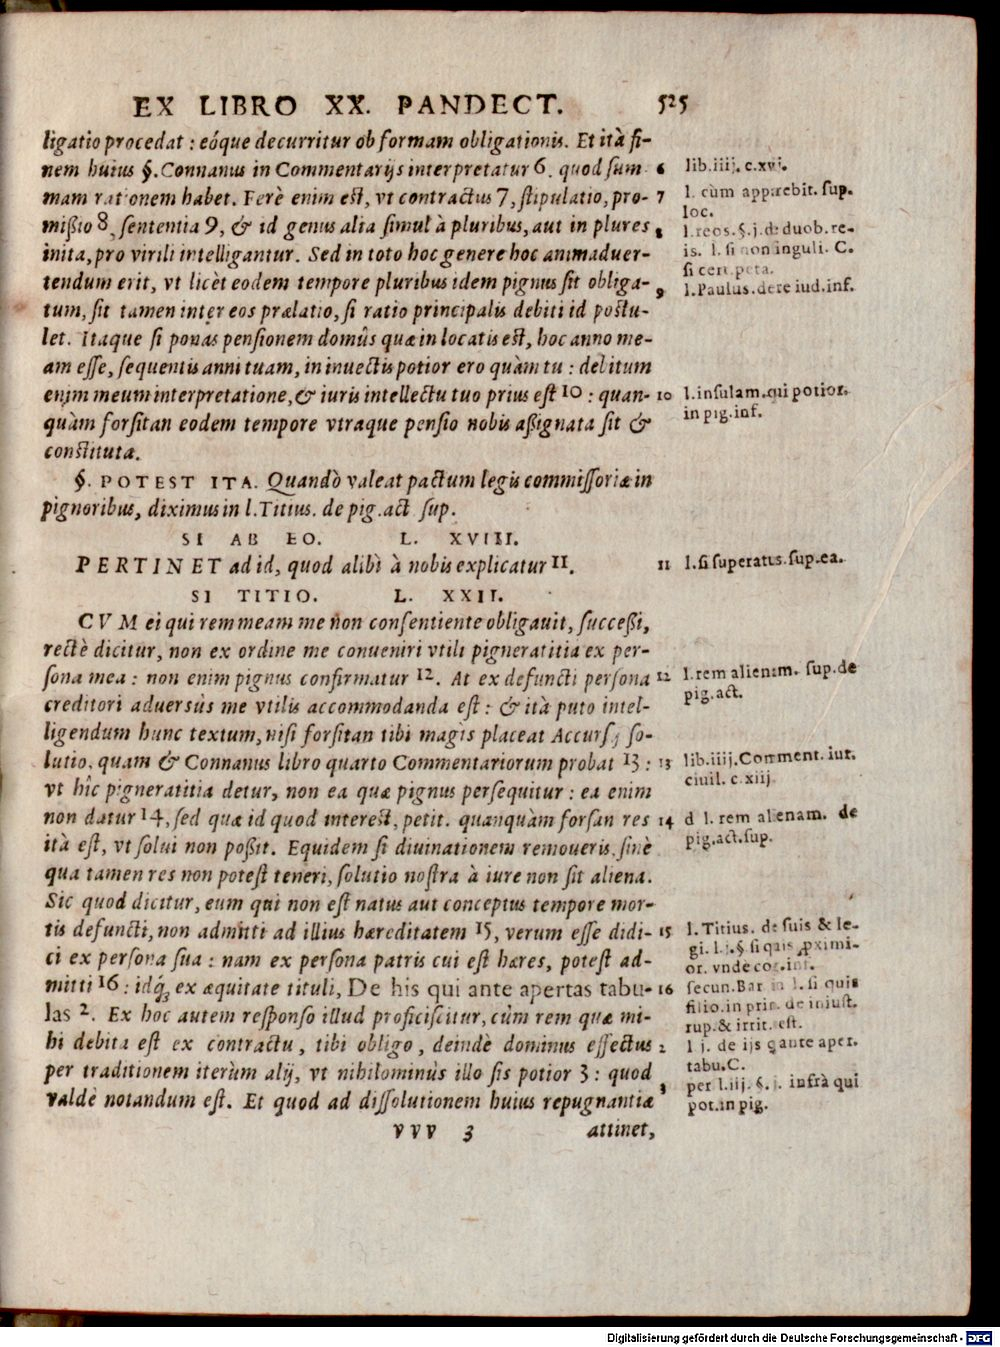 EX LIBRO XX. PANDECT. 525
ligatio procedat : eóque decurritur ob formam obligationis. Et ità fi-
nem huius §. Connanus in Commentarijs interpretatur 6. quod sum
mam rationem habet. Ferè enim est, vt contractus 7, stipulatio, pro-
mißio 8, sententia 9, & id genus alia simul à pluribus, aut in plures
inita, pro virili intelligantur. Sed in toto hoc genere hoc animaduer-
tendum erit, vt licèt eodem tempore pluribus idem pignus sit obliga-
tum, sit tamen inter eos prælatio, si ratio principalis debiti id postu-
let. Itaque si ponas pensionem domûs quæ in locatis est, hoc anno me-
am esse, sequentis anni tuam, in inuectis potior ero quàm tu : debitum
enim meum interpretatione, & iuris intellectu tuo prius est 10 : quan-
quàm forsitan eodem tempore vtraque pensio nobis aßignata sit &
constituta.
§. POTEST ITA. Quandò valeat pactum legis commissoriæ in
pignoribus, diximus in l. Titius. de pig. act sup.
SI AB EO. L. XVIII.
PERTINET ad id, quod alibì à nobis explicatur 11.
SI TITIO. L. XXII.
CVM ei qui rem meam me non consentiente obligauit, succeßi,
rectè dicitur, non ex ordine me conueniri vtili pigneratitia ex per-
sona mea : non enim pignus confirmatur 12. At ex defuncti persona
creditori aduersùs me vtilis accommodanda est : & ità puto intel-
ligendum hunc textum, nisi forsitan tibi magìs placeat Accursij so-
lutio, quam & Connanus libro quarto Commentariorum probat 13 :
vt hîc pigneratitia detur, non ea quæ pignus persequitur : ea enim
non datur 14, sed quæ id quod interest, petit. quanquàm forsan res
ità est, vt solui non poßit. Equidem si diuinationem remoueris, sinè
qua tamen res non potest teneri, solutio nostra à iure non sit aliena.
Sic quod dicitur, eum qui non est natus aut conceptus tempore mor-
tis defuncti, non admitti ad illius hæreditatem 15, verum esse didi-
ci ex persona sua : nam ex persona patris cui est hæres, potest ad-
mitti 16 : idq́; ex æquitate tituli, De his qui ante apertas tabu-
las 2. Ex hoc autem responso illud proficiscitur, cùm rem quæ mi-
hi debita est ex contractu, tibi obligo, deindè dominus effectus
per traditionem iterùm alij, vt nihilominùs illo sis potior 3 : quod
valdè notandum est. Et quod ad dissolutionem huius repugnantiæ
VVV 3 attinet,
6 lib. iiij. c. xvi.
7 l. cùm apparebit. sup.
loc.
8 l. reos. §. j. de duob. re-
is. l. si non singuli. C.
si cert. peta.
9 l. Paulus. de re iud. inf.
10 l. insulam. qui potior.
in pig. inf.
11 l. si superatus. sup. ea.
12 l. rem alienam. sup. de
pig. act.
13 lib. iiij. Comment. iur.
ciuil. c. xiij
14 d l. rem alienam. de
pig. act. sup.
15 l. Titius. de suis & le-
gi. l. j. § si quis ꝓximi-
or. vndè cog. inf.
16 secun. Bar in l. si quis
filio. in prin. de iniust.
rup. & irrit. test.
2 l j. de ijs q ante aper.
tabu. C.
3 per l. iij. §. j. infrà qui
pot. in pig.
Digitalisierung gefördert durch die Deutsche Forschungsgemeinschaft - DFG